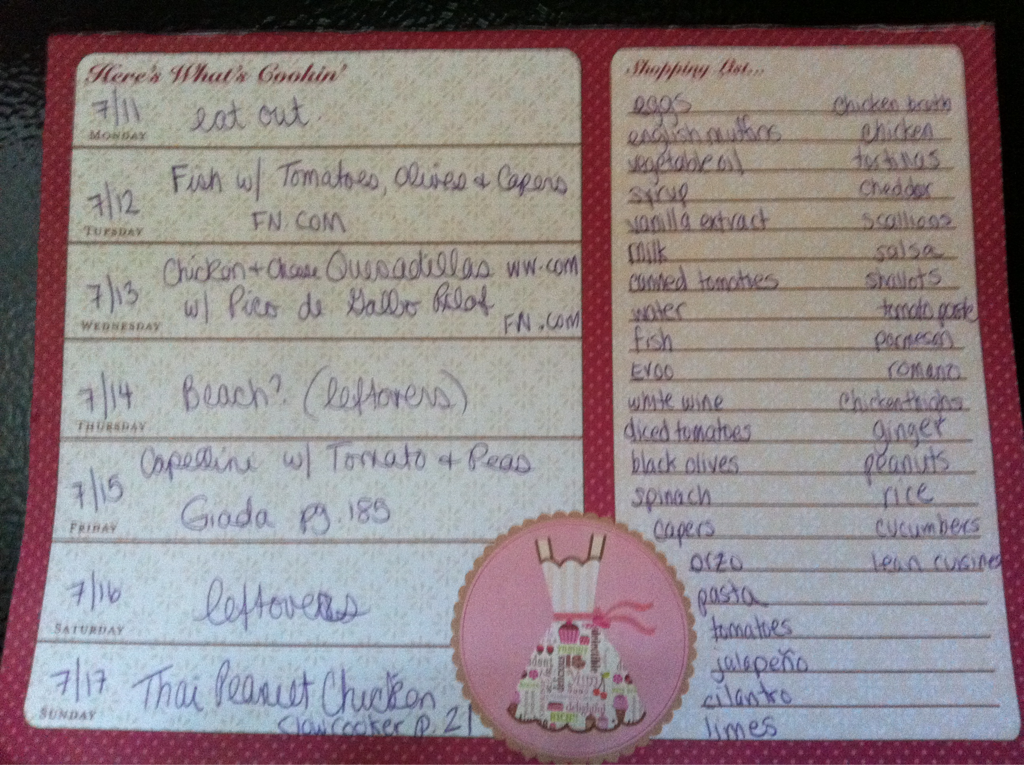 Here's What's Cookin'
7/11
MONDAY
eat out
7/12
TUESDAY
Fish w/ Tomatoes, Olives + Capers
FN.COM
7/13
WEDNESDAY
Chicken + Cheese Quesadillas WW.COM
w/ Pico de Gallo Pilaf
FN.COM
7/14
THURSDAY
Beach? (leftovers)
7/15
FRIDAY
Capellini w/ Tomato + Peas
Giada pg. 185
7/16
SATURDAY
leftovers
7/17
SUNDAY
Thai Peanut Chicken
Slow cooker p. 21
Shopping List...
eggs
english muffins
vegetable oil
syrup
vanilla extract
milk
canned tomatoes
water
fish
EVOO
white wine
diced tomatoes
black olives
spinach
capers
orzo
pasta
tomatoes
jalapeño
cilantro
limes
chicken broth
chicken
tortillas
cheddar
scallions
salsa
shallots
tomato paste
parmesan
romano
chicken thighs
ginger
peanuts
rice
cucumbers
lean cuisines
yummy
delightful